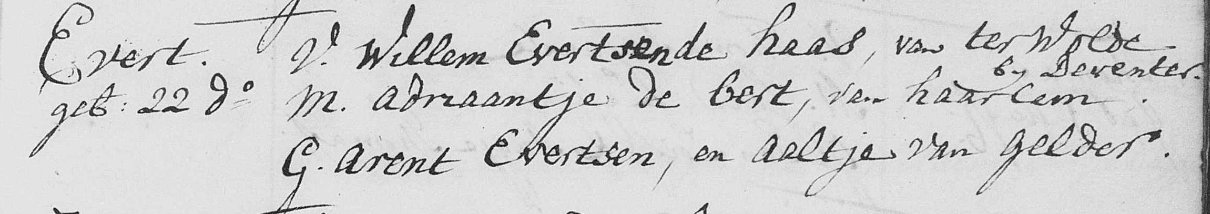 Evert. V. Willem Evertsen de haas, van ter Wolde
by Deventer.
geb: 22 do M. adriaantje de bert, van haarlem.
G. arent Evertsen, en aaltje van gelder.